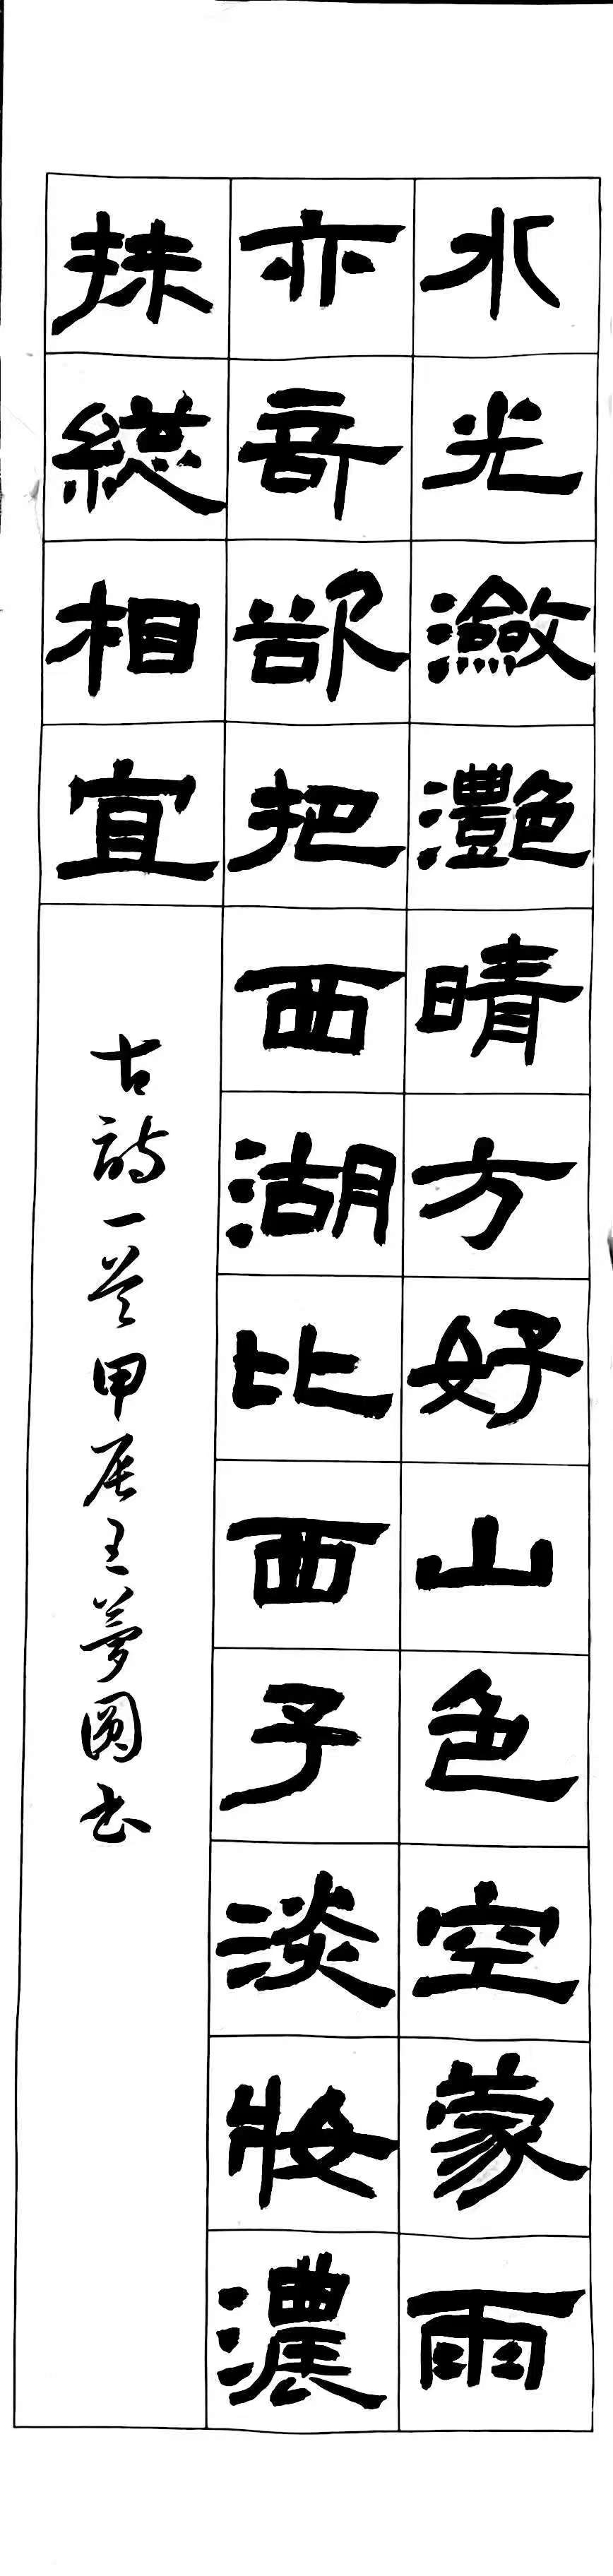 水光瀲灩晴方好山色空蒙雨
亦奇欲把西湖比西子淡妝濃
抹總相宜
古詩一首甲辰王夢圓書